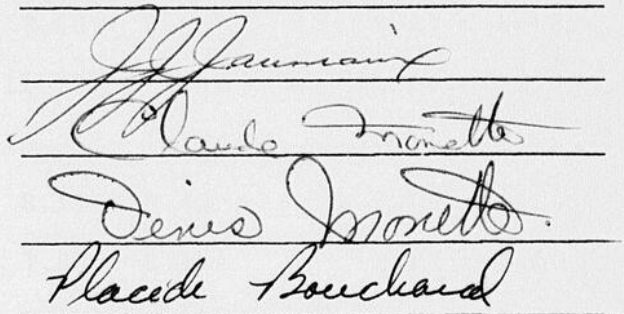 Claude Monette
Denis Monette
Placide Bouchard